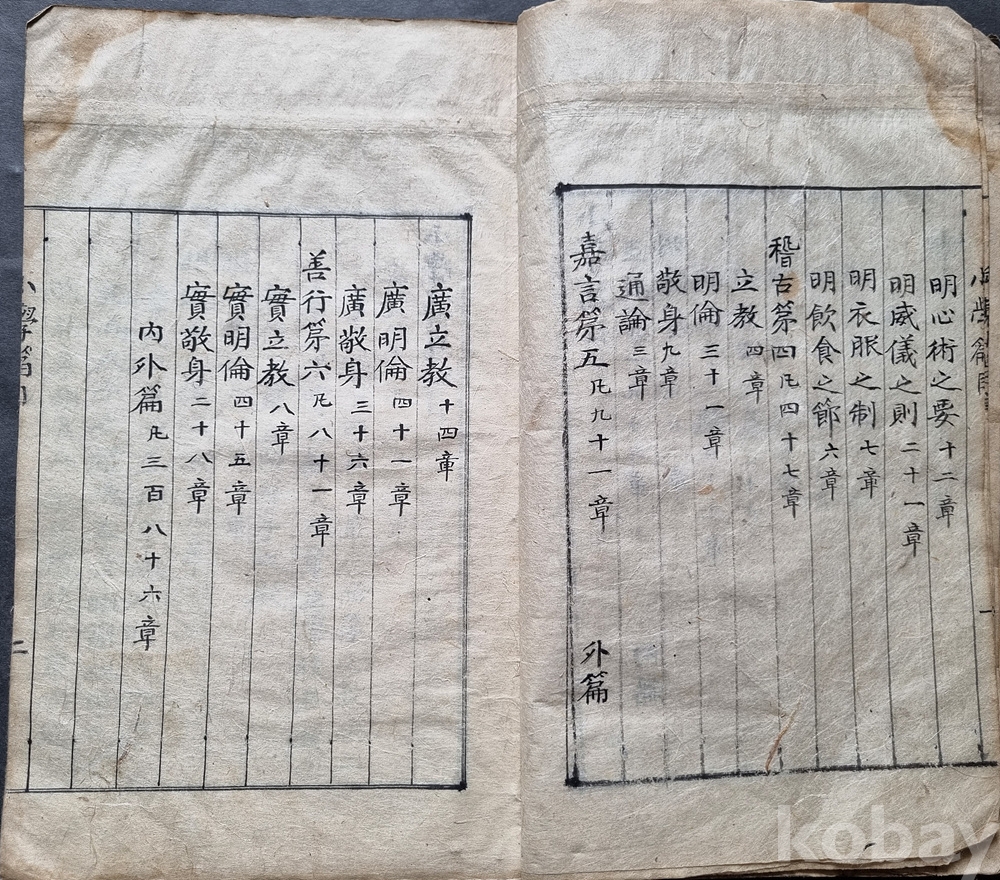 明心術之要十二章
明威儀之則二十一章
明衣服之制七章
明飲食之節六章
稽古第四凡四十七章
立教四章
明倫三十一章
敬身九章
通論三章
嘉言第五凡九十一章 外篇
一
廣立教十四章
廣明倫四十一章
廣敬身三十六章
善行第六凡八十一章
實立教八章
實明倫四十五章
實敬身二十八章
內外篇凡三百八十六章
小學篇目
二
kobay